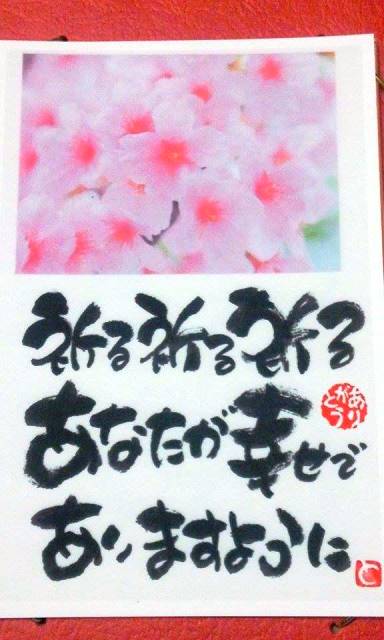 祈る祈る祈る
あなたが幸せで
ありますように
ありがとう